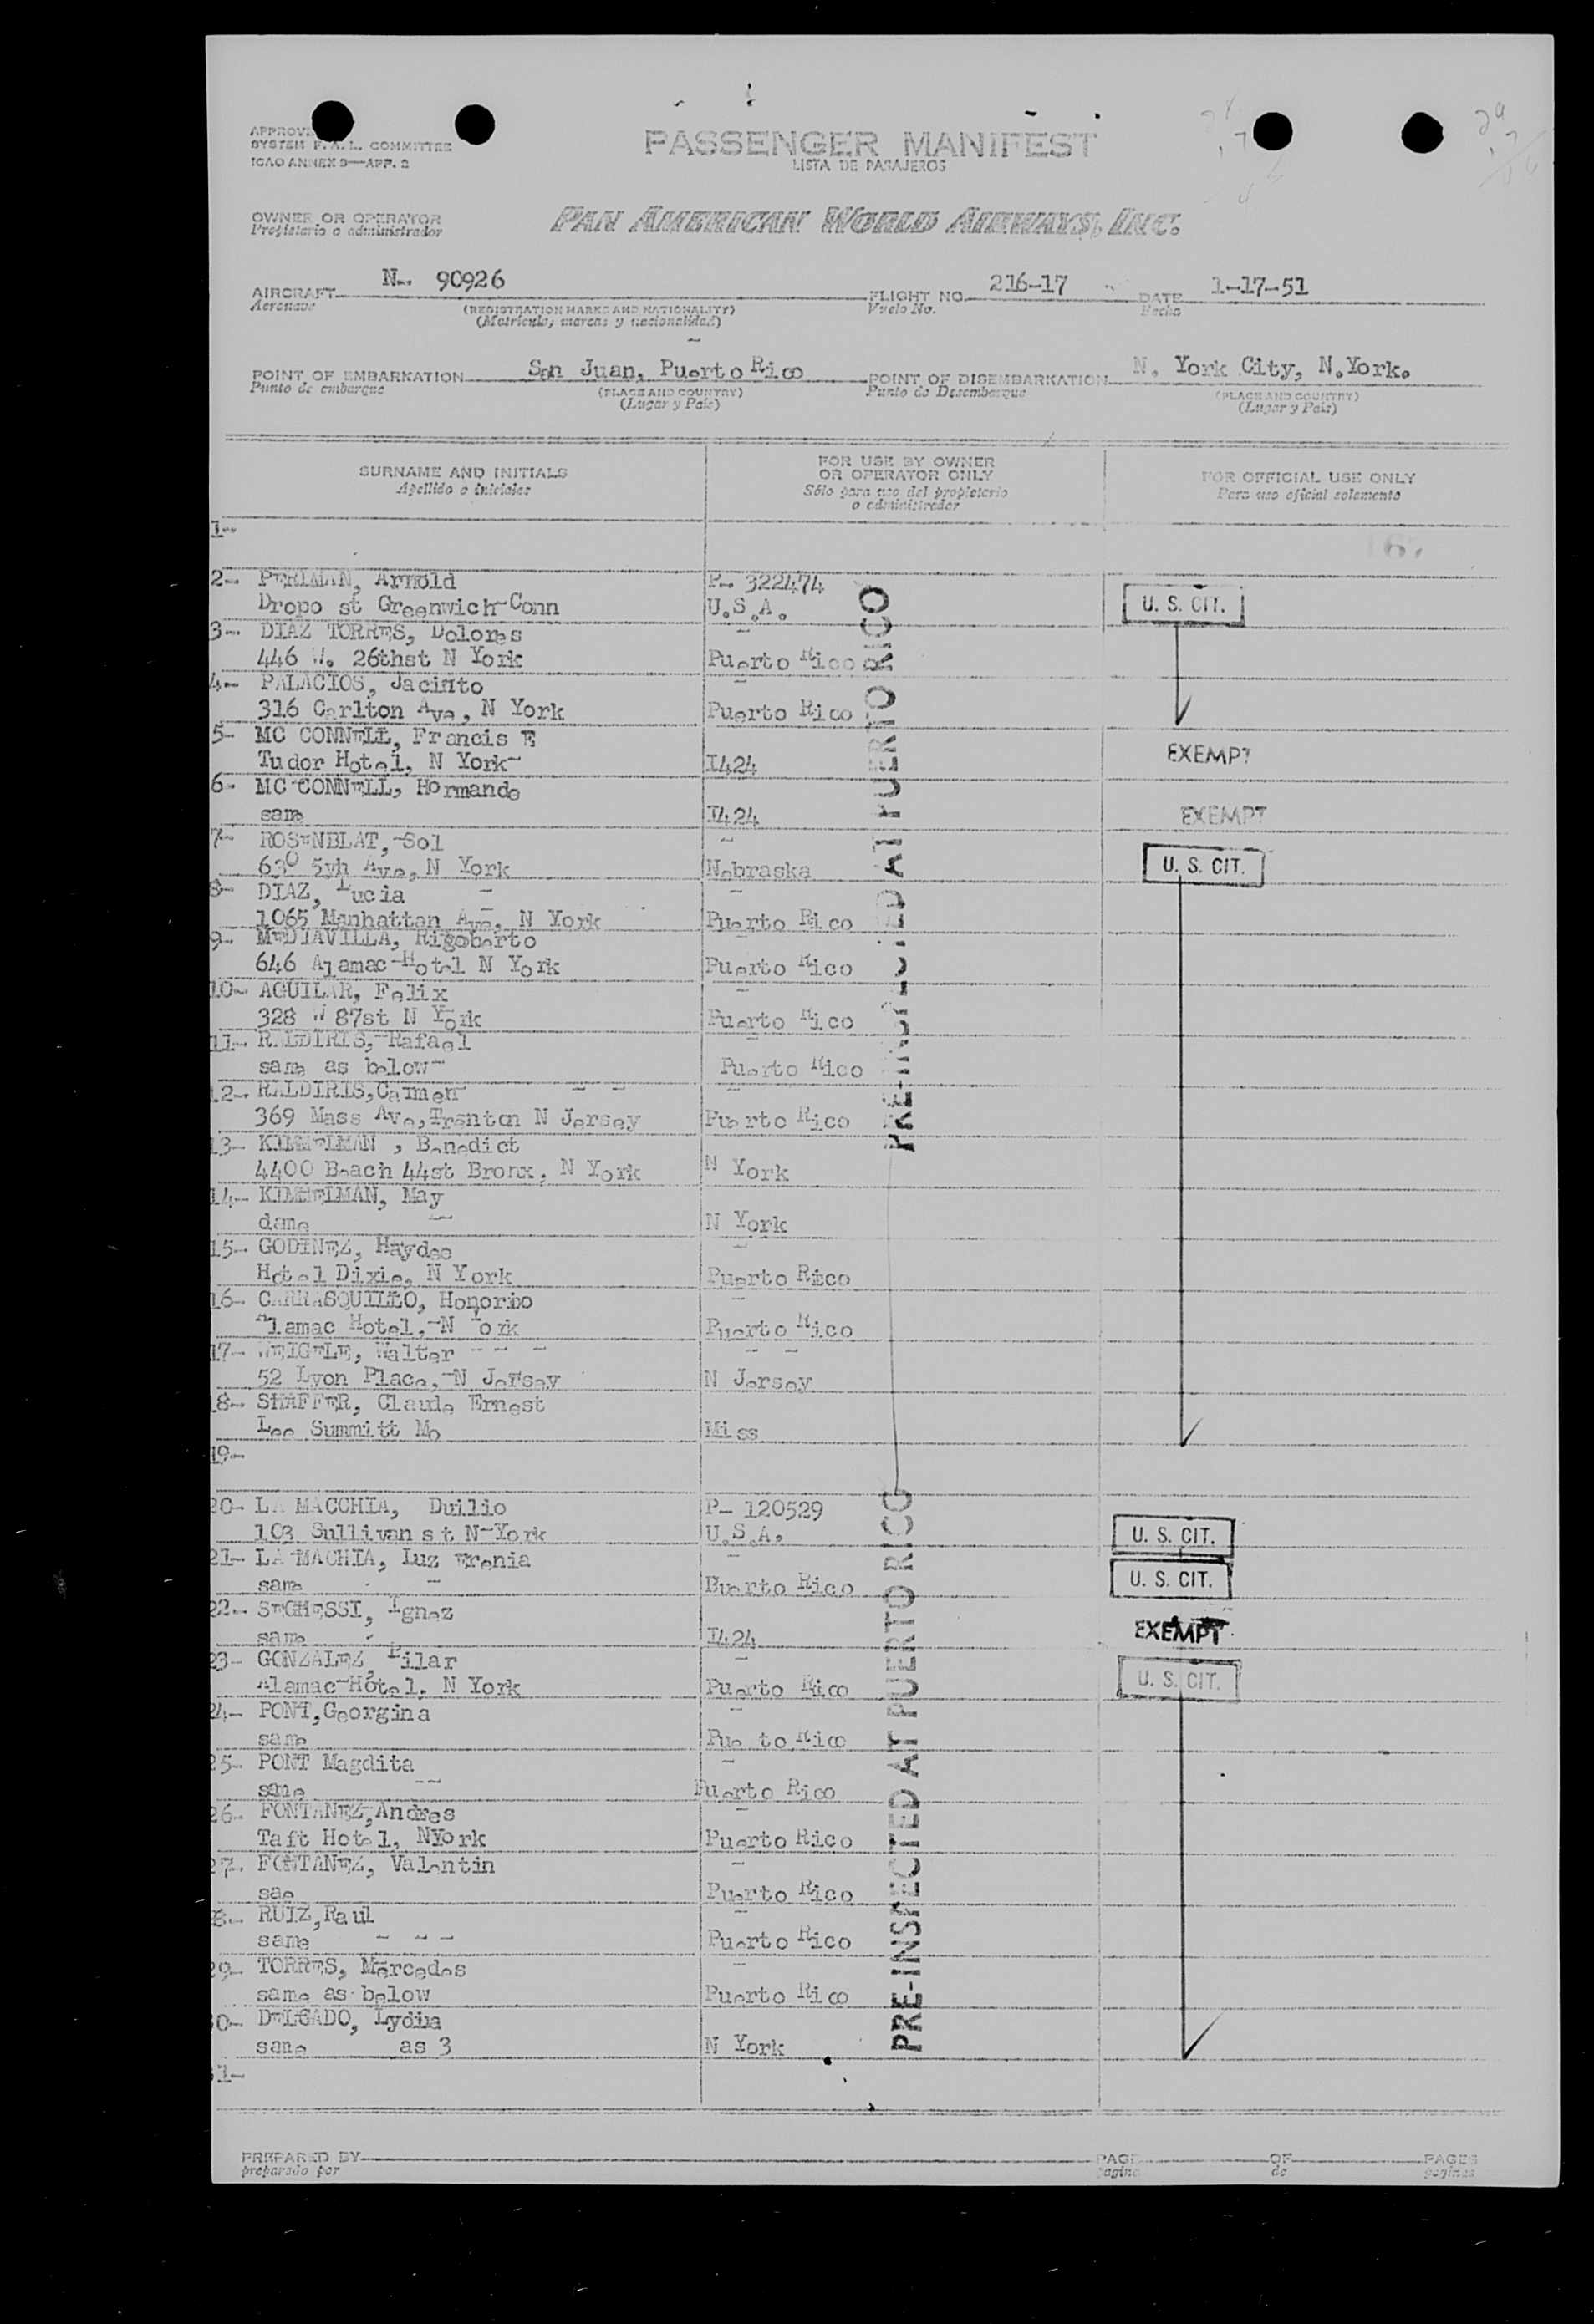 PASSENGER MANIFEST
LISTA DE PASAJEROS
SYSTEM F. A. L. COMMITTEE
ICAO ANNEX 9—APP. 2
OWNER OR OPERATOR
Propietario o administrador
PAN AMERICAN WORLD AIRWAYS, INC.
AIRCRAFT N-- 90926 FLIGHT NO. 216-17 DATE 1-17-51
Aeronave (REGISTRATION MARKS AND NATIONALITY) Vuelo No. Fecha
(Matricula, marcas y nacionalidad)
POINT OF EMBARKATION San Juan, Puerto Rico POINT OF DISEMBARKATION N. York City, N.York.
Punto de embarque (PLACE AND COUNTRY) Punto de Desembarque (PLACE AND COUNTRY)
(Lugar y País) (Lugar y País)
SURNAME AND INITIALS
Apellido e iniciales
FOR USE BY OWNER
OR OPERATOR ONLY
Sólo para uso del propietario
o administrador
FOR OFFICIAL USE ONLY
Para uso oficial solamente
1--
2-- PERLMAN, Arnold P- 322474
Dropo st Greenwich Conn U.S.A. U. S. CIT.
3-- DIAZ TORRES, Dolores
446 W. 26thst N York Puerto Rico
4-- PALACIOS, Jacinto
316 Carlton Ave, N York Puerto Rico
5- MC CONNELL, Francis E
Tudor Hotel, N York I424 EXEMPT
6- MC CONNELL, Hormande
same I424 EXEMPT
7- ROSENBLAT, Sol
630 5yh Ave, N York Nebraska U. S. CIT.
8- DIAZ, Lucia
1065 Manhattan Ave, N York Puerto Rico
9- MEDIAVILLA, Rigoberto
646 Alamac Hotel N York Puerto Rico
10- AGUILAR, Felix
328 W 87st N York Puerto Rico
11- RALDIRIS, Rafael
same as below Puerto Rico
12- RALDIRIS, Carmen
369 Mass Ave, Trenton N Jersey Puerto Rico
13- KIMMELMAN , Benedict
4400 Beach 44st Bronx, N York N York
14- KIMMELMAN, May
dame N York
15- GODINEZ, Haydee
Hotel Dixie, N York Puerto Rico
16- CARRASQUILLO, Honorio
Alamac Hotel, N York Puerto Rico
17- WEIGELE, Walter
52 Lyon Place, N Jersey N Jersey
18- SHAFFER, Claude Ernest
Lee Summitt Mo Miss
19--
20- LA MACCHIA, Duilio P- 120529
103 Sullivan st N York U.S.A. U. S. CIT.
21- LA MACHIA, Luz Erenia
same Puerto Rico U. S. CIT.
22- SEGHESSI, Ignez
same I424 EXEMPT
23- GONZALEZ, Pilar
Alamac Hotel. N York Puerto Rico U. S. CIT.
24- PONT, Georgina
same Pue to Rico
25- PONT Magdita
same Puerto Rico
26- FONTANEZ, Andres
Taft Hotel, NYork Puerto Rico
27. FONTANEZ, Valentin
sae Puerto Rico
8- RUIZ, Raul
same Puerto Rico
29- TORRES, Mercedes
same as below Puerto Rico
0- DELGADO, Lydia
same as 3 N York
1-
PRE-INSPECTED AT PUERTO RICO
PRE-INSPECTED AT PUERTO RICO
PREPARED BY PAGE OF PAGES
preparado por pagina de paginas